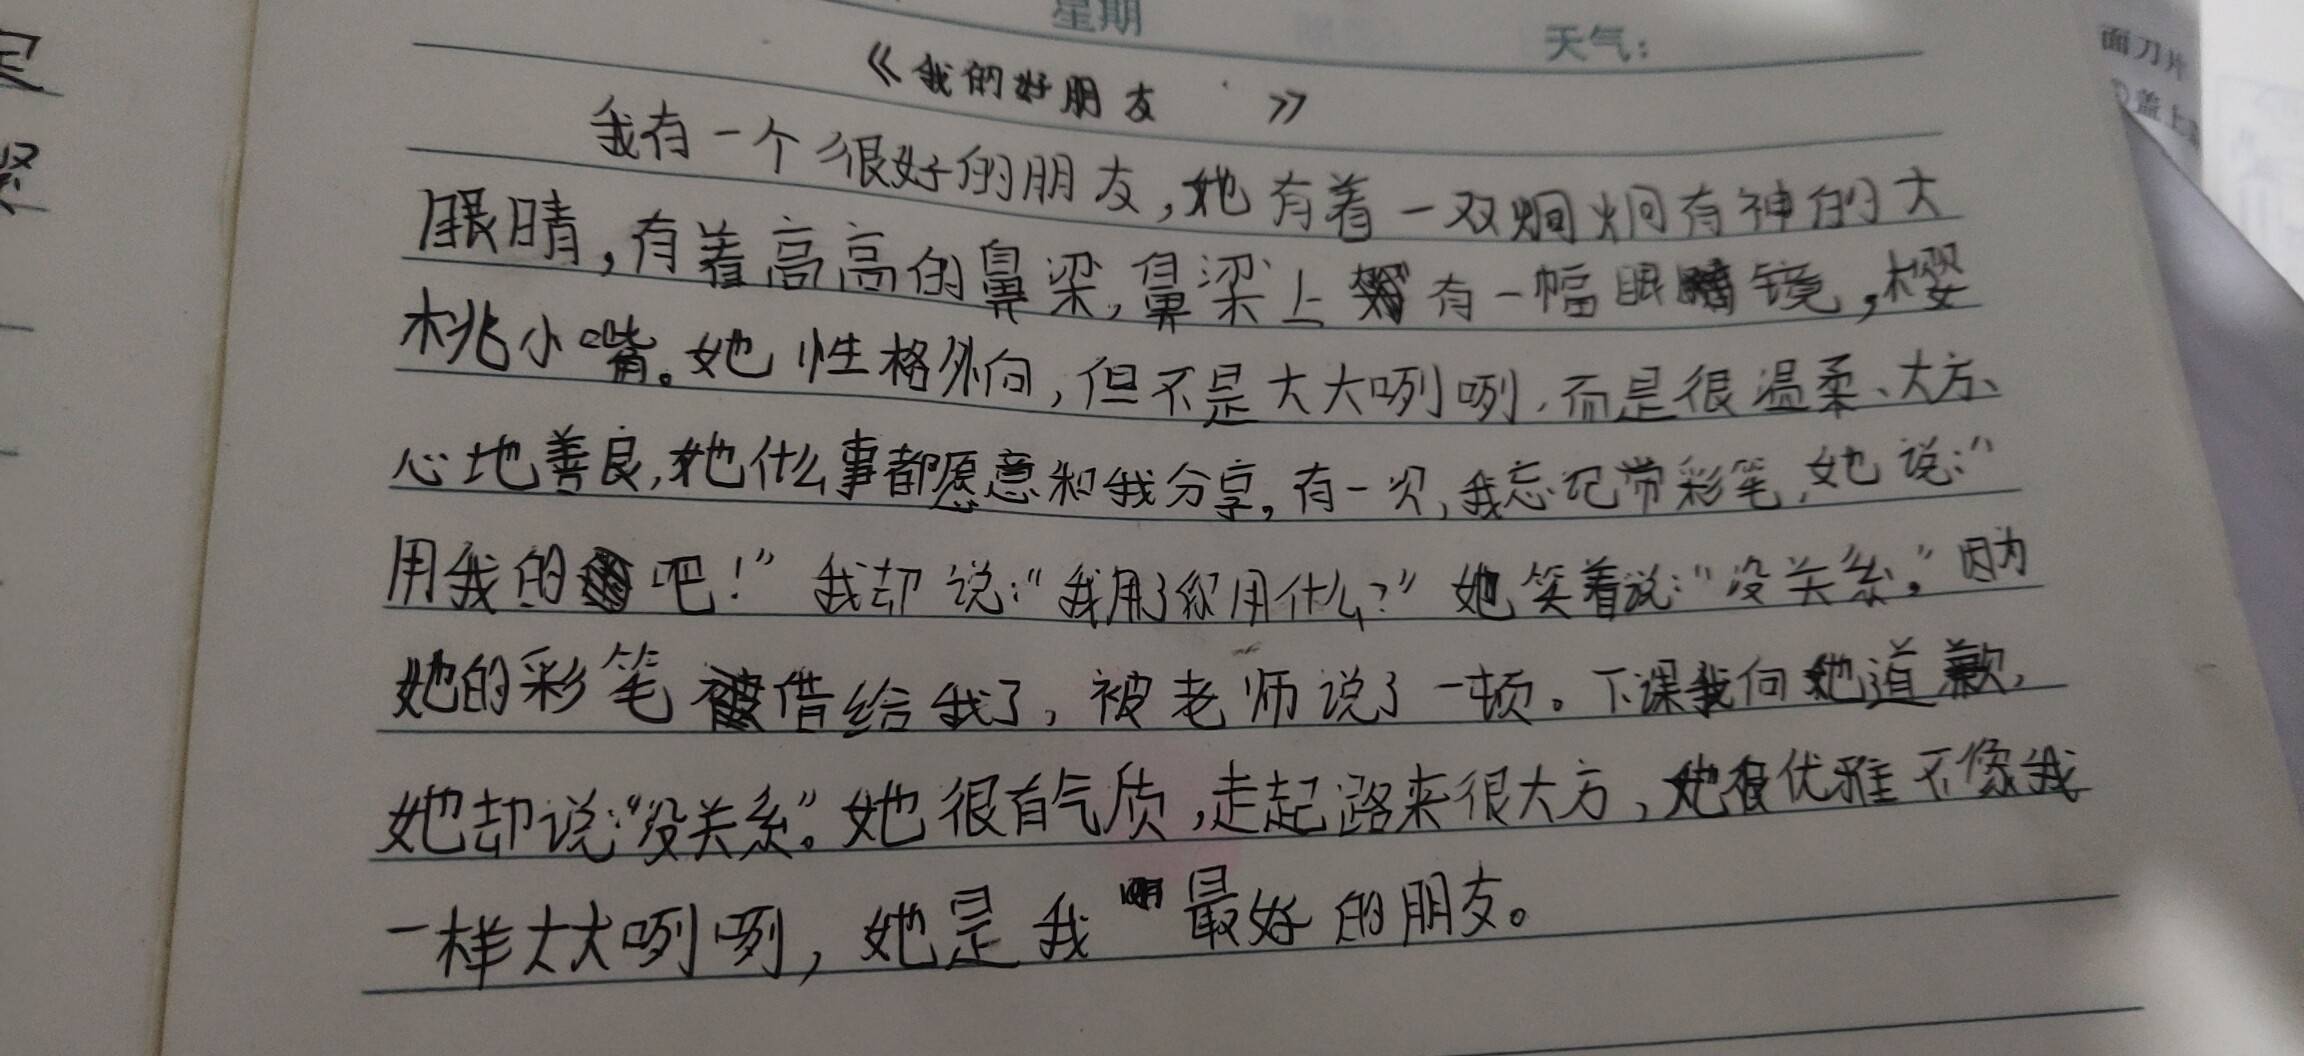 星期
天气：
面刀片
盖上
《我的好朋友 》
我有一个很好的朋友，她有着一双炯炯有神的大
眼睛，有着高高的鼻梁，鼻梁上有一幅眼镜，樱
桃小嘴。她性格外向，但不是大大咧咧，而是很温柔、大方、
心地善良，她什么事都愿意和我分享。有一次，我忘记带彩笔，她说：“
用我的吧！”我却说：“我用了你用什么？”她笑着说：“没关系。”因为
她的彩笔借给我了，被老师说了一顿。下课我向她道歉，
她却说：“没关系”。她很有气质，走起路来很大方，她很优雅不像我
一样大大咧咧，她是我最好的朋友。